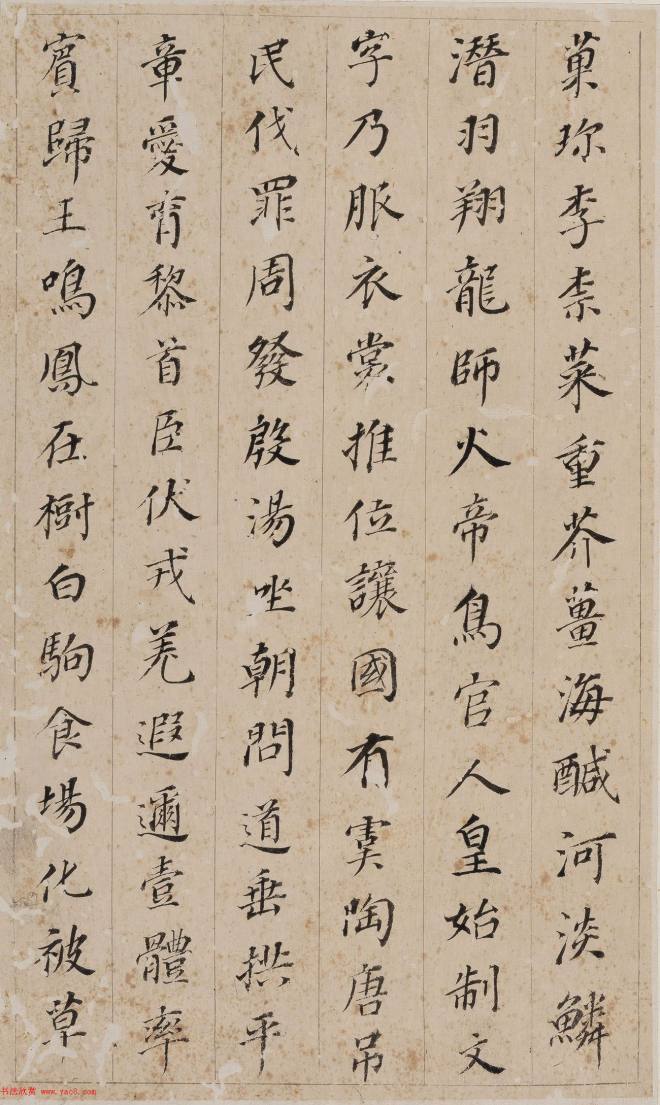 菓珎李柰菜重芥薑海醎河淡鱗
潛羽翔龍師火帝鳥官人皇始制文
字乃服衣裳推位讓國有虞陶唐吊
民伐罪周發殷湯坐朝問道垂拱平
章愛育黎首臣伏戎羌遐邇壹體率
賓歸王鳴鳳在樹白駒食場化被草
书法欣赏 www.yac8.com